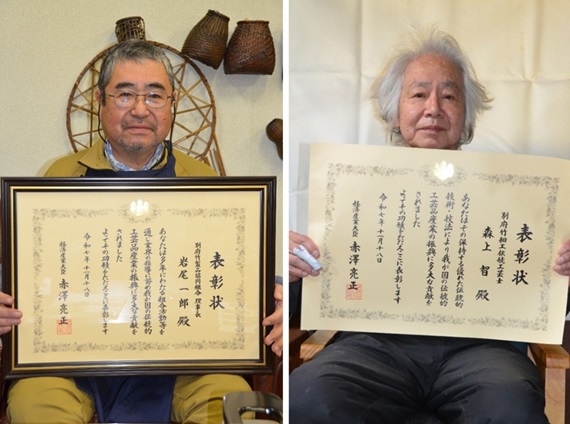 表彰状
別府竹製品協同組合 理事長
岩尾一郎殿
あなたは多年にわたり組合活動等を
通し業界の指導に努め我が国の伝統的
工芸品産業の振興に多大な貢献を
されました
よってその功績をたたえここに表彰します
令和七年十一月十八日
経済産業大臣 赤澤亮正
表彰状
別府竹細工伝統工芸士
森上 智殿
あなたはその保持する優れた伝統的
技術・技法により我が国の伝統的
工芸品産業の振興に多大な貢献を
されました
よってその功績をたたえここに表彰します
令和七年十一月十八日
経済産業大臣 赤澤亮正